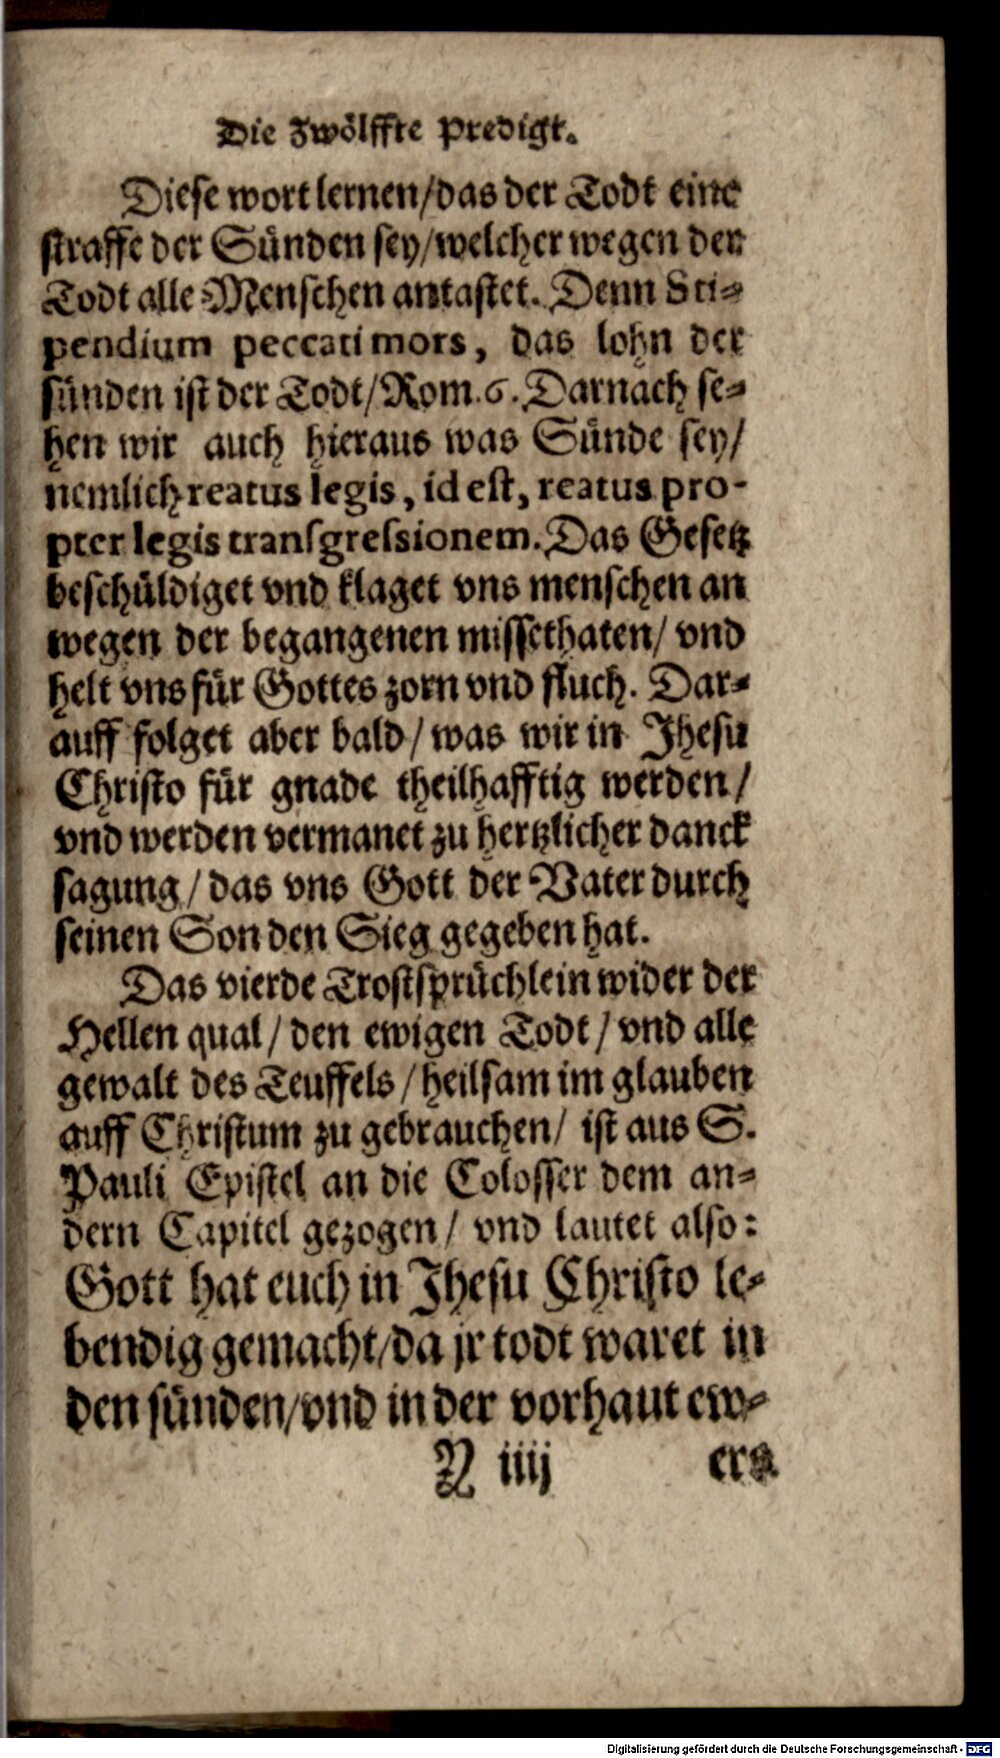 Die Zwölffte Predigt.
Diese wort lernen/das der Todt eine
straffe der Sünden sey/welcher wegen der
Todt alle Menschen antastet. Denn Sti⸗
pendium peccati mors, das lohn der
sünden ist der Todt/Rom.6. Darnach se⸗
hen wir auch hieraus was Sünde sey/
nemlich reatus legis, id est, reatus pro-
pter legis transgressionem. Das Gesetz
beschüldiget vnd klaget vns menschen an
wegen der begangenen missethaten/ vnd
helt vns für Gottes zorn vnd fluch. Dar⸗
auff folget aber bald/was wir in Jhesu
Christo für gnade theilhafftig werden/
vnd werden vermanet zu hertzlicher danck
sagung/das vns Gott der Vater durch
seinen Son den Sieg gegeben hat.
Das vierde Trostsprüchlein wider der
Hellen qual/den ewigen Todt/vnd alle
gewalt des Teuffels/heilsam im glauben
auff Christum zu gebrauchen/ ist aus S.
Pauli Epistel an die Colosser dem an⸗
dern Capitel gezogen/ vnd lautet also:
Gott hat euch in Jhesu Christo le⸗
bendig gemacht/da jr todt waret in
den sünden/vnd in der vorhaut ew⸗
Y iiij
Digitalisierung gefördert durch die Deutsche Forschungsgemeinschaft - DFG